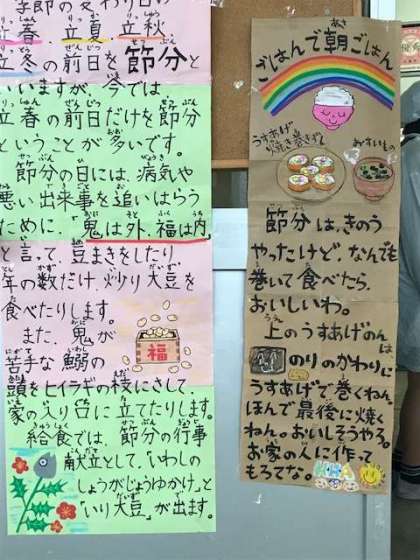 季節の変わり日の
立春、立夏、立秋、
立冬の前日を節分と
いいますが、今では、
立春の前日だけを節分
ということが多いです。
節分の日には、病気や
悪い出来事を追いはらう
ために、「鬼は外、福は内」
と言って、豆まきをしたり、
年の数だけ、炒り大豆を
食べたりします。
また、鬼が
苦手な鰯の
頭をヒイラギの枝にさして、
家の入り口に立てたりします。
給食では、節分の行事
献立として、「いわしの
しょうがじょうゆかけ」と
「いり大豆」が出ます。
福
ごはんで朝ごはん
うすあげ
焼き巻きずし
おすいもの
節分は、きのう
やったけど、なんでも
巻いて食べたら、
おいしいわ。
上のうすあげのんは
のりのかわりに
うすあげで巻くねん。
ほんで最後に焼く
ねん。おいしそうやろ。
お家の人に作って
もろてな。